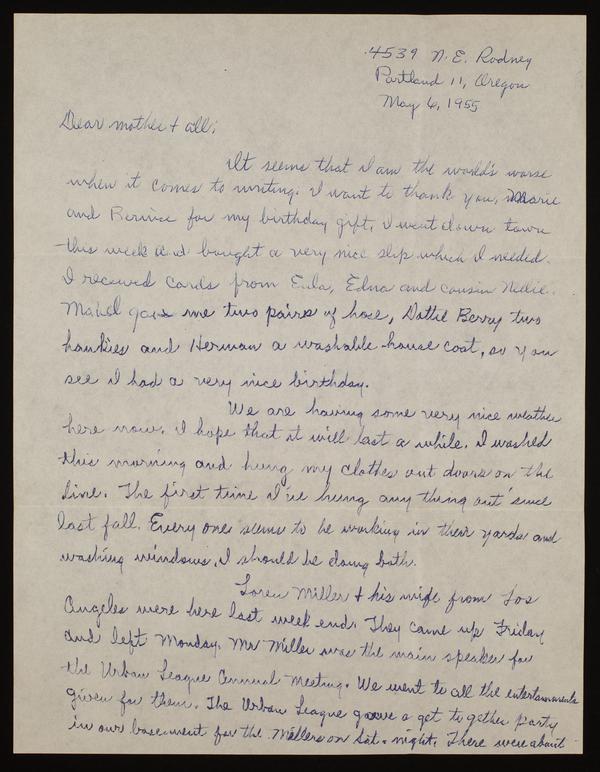 4539 N.E. Rodney
Portland 11, Oregon
May 6, 1955
Dear mother & all;
It seems that I am the world's worse
when it comes to writing. I want to thank you, Marie
and Bernice for my birthday gift. I went down town
this week and bought a very nice slip which I needed.
I received cards from Eula, Edna and cousin Nellie.
Mabel gave me two pairs of hose, Dottie Berry two
hankies and Herman a washable house coat, so you
see I had a very nice birthday.
We are having some very nice weather
here now. I hope that it will last a while. I washed
this morning and hung my clothes out doors on the
line. The first time I've hung any thing out since
last fall. Every one seems to be working in their yards and
washing windows, I should be doing both.
Loren Miller & his wife from Los
Angeles were here last week end. They came up Friday
and left Monday. Mr Miller was the main speaker for
the Urban League Annual Meeting. We went to all the
given for them. The Urban League gave a get to gether party
in our basement for the Millers on Sat. night. There were about